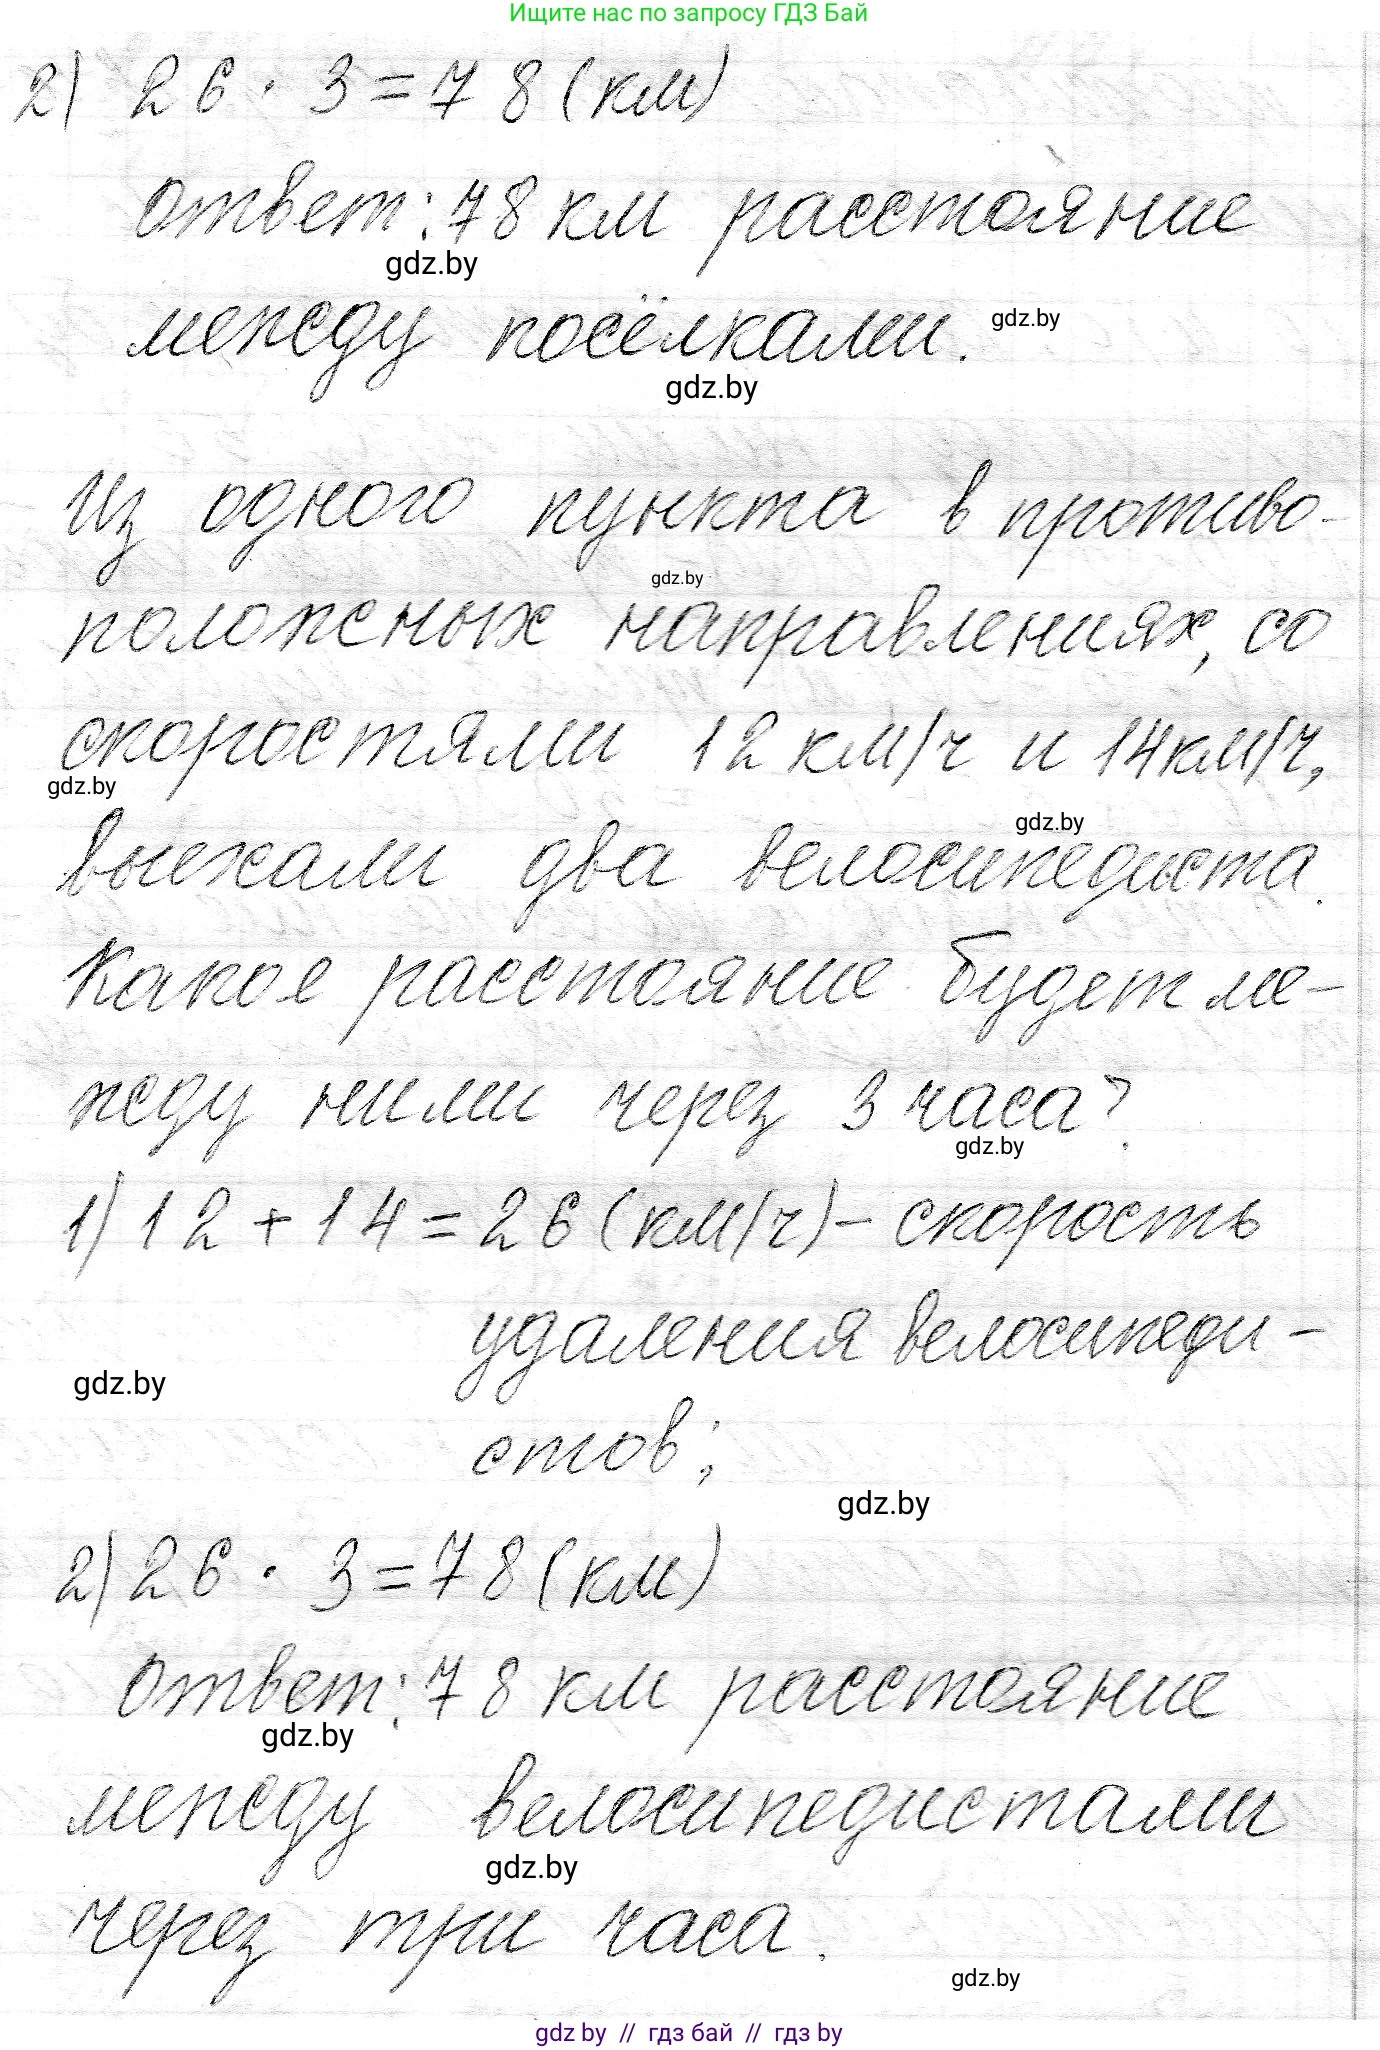 Ищите нас по запросу ГДЗ Бай
2) 26 · 3 = 78 (км)
Ответ: 78 км расстояние
gdz.by
между посёлками.
gdz.by
gdz.by
Из одного пункта в противо-
gdz.by
положных направлениях, со
скоростями 12 км/ч и 14 км/ч,
gdz.by
gdz.by
выехали два велосипедиста.
Какое расстояние будет ме-
жду ними через 3 часа?
gdz.by
1) 12 + 14 = 26 (км/ч) – скорость
удаления велосипеди-
gdz.by
стов;
gdz.by
2) 26 · 3 = 78 (км)
Ответ: 78 км расстояние
gdz.by
между велосипедистами
gdz.by
через три часа.
gdz.by
gdz by // гдз бай // гдз by